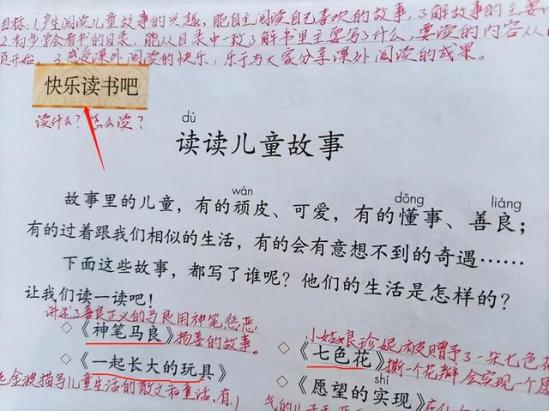 目标:1.产生阅读儿童故事的兴趣,能自主阅读自己喜欢的故事,了解故事的主要内
2.初步学会看书的目录,能从目录中一致了解书里主要写了什么,要读的内容从
页开始。3.感受课外阅读的快乐,乐于与大家分享课外阅读的成果。
快乐读书吧
读什么?怎么读?
dú
读读儿童故事
wán dǒng liáng
故事里的儿童,有的顽皮、可爱,有的懂事、善良;
有的过着跟我们相似的生活,有的会有意想不到的奇遇……
下面这些故事,都写了谁呢?他们的生活是怎样的?
让我们读一读吧!
讲述了善良正义的马良用神笔惩恶
扬善的故事。
◇《神笔马良》
小姑娘珍妮被赠予了一朵七色花
撕一个花瓣会实现一个愿
◇《七色花》
◇《一起长大的玩具》
shí
◇《愿望的实现》
描写儿童生活的散文和童话,有